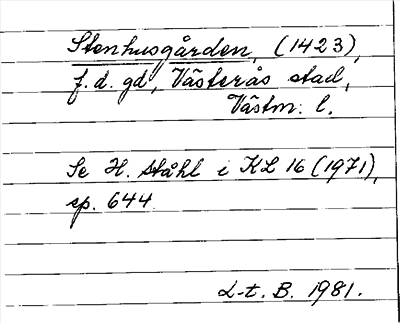 Stenhusgården, (1423),
f. d. gd, Västerås stad,
Västm. l.
Se H. Ståhl i KL 16 (1971),
sp. 644
L-t. B. 1981.